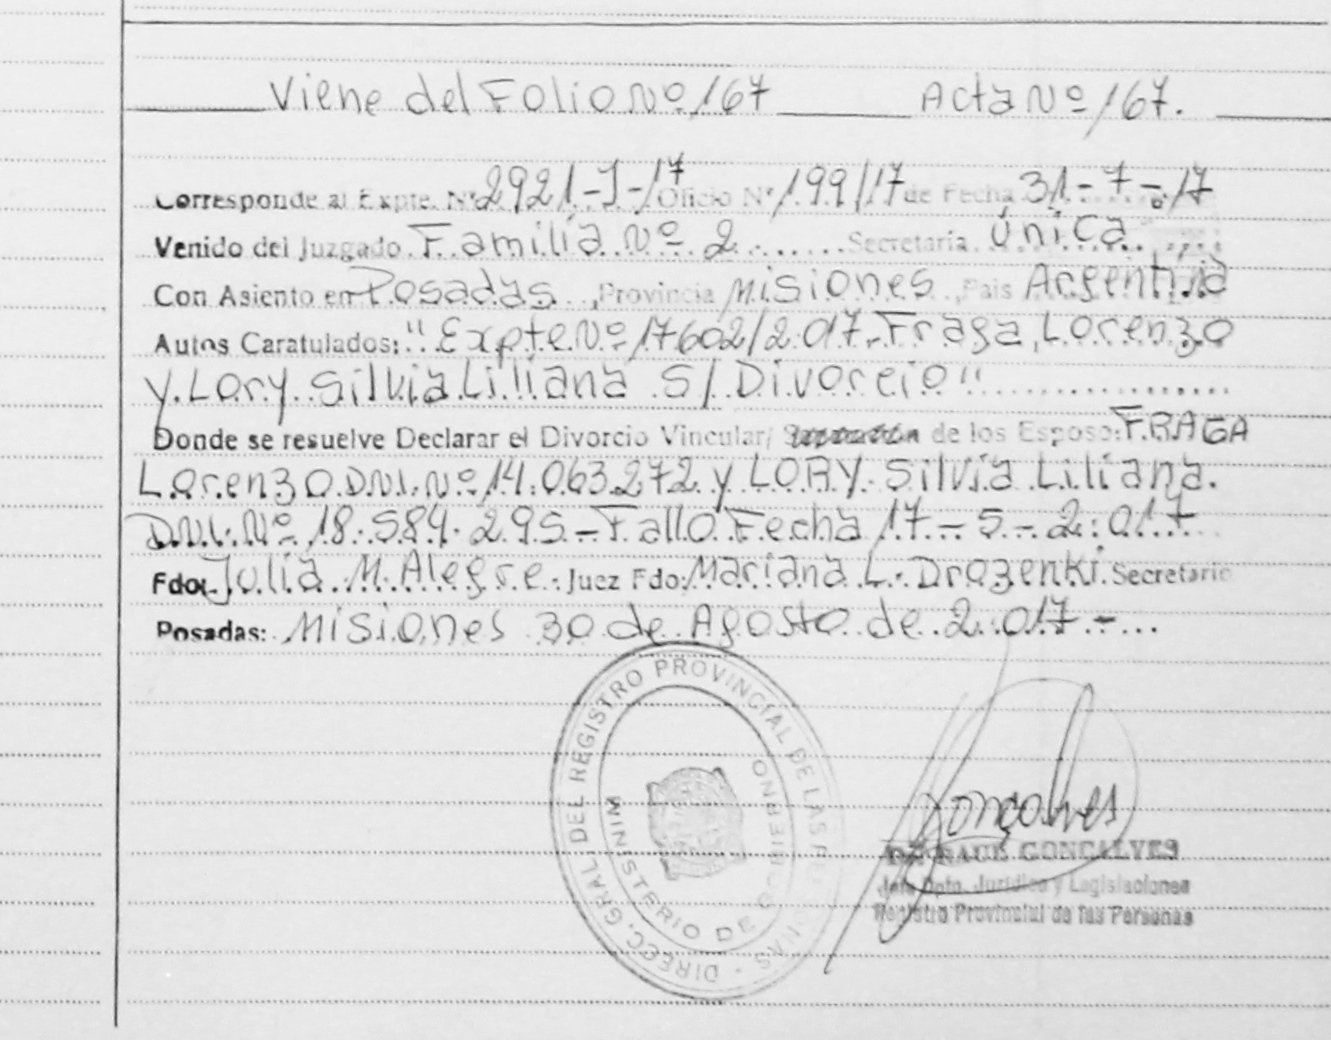 Viene del Folio Nº 167 Acta Nº 167.
Corresponde al Expte. Nº 2921-J-17 Oficio Nº 199/17 de Fecha 31-7-17
Venido del Juzgado Familia Nº 2 Secretaría única
Con Asiento en Posadas, Provincia Misiones, Pais Argentina
Autos Caratulados: "Expte Nº 17602/2.017-Fraga, Lorenzo
y Lory Silvia Liliana S/ Divorcio"
Donde se resuelve Declarar el Divorcio Vincular/ de los Esposo: FRAGA
Lorenzo DNI. Nº 14.063.272 y LORY Silvia Liliana.
DNI. Nº 18.584.295-Fallo Fecha 17-5-2.017
Fdo: Julia M. Alegre. Juez Fdo: Mariana L. Drozenki. Secretario
Posadas: Misiones 30 de Agosto de 2.017-
DIRECC. GRAL. DEL REGISTRO PROVINCIAL DE LAS PERSONAS
MINISTERIO DE GOBIERNO
Gonçalves
GONCALVES
Jefe Dpto. Jurídico y Legislaciones
Registro Provincial de las Personas